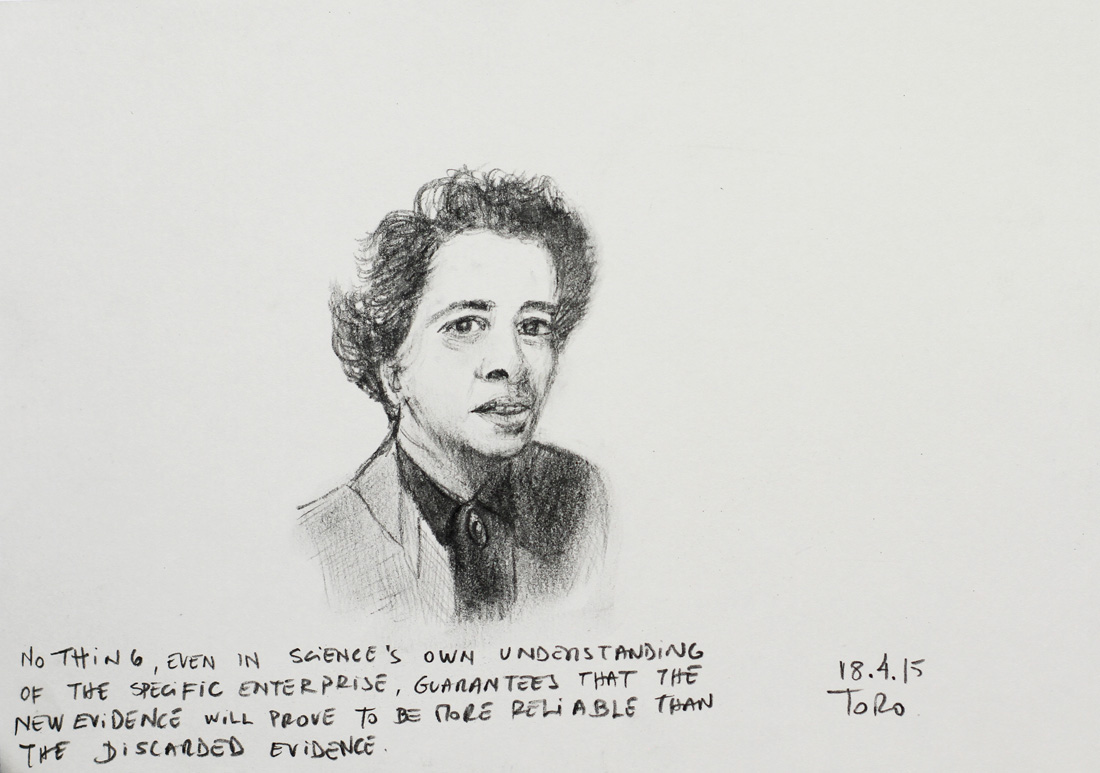 NOTHING, EVEN IN SCIENCE'S OWN UNDERSTANDING
OF THE SPECIFIC ENTERPRISE, GUARANTEES THAT THE
NEW EVIDENCE WILL PROVE TO BE MORE RELIABLE THAN
THE DISCARDED EVIDENCE.
18.4.15
TORO